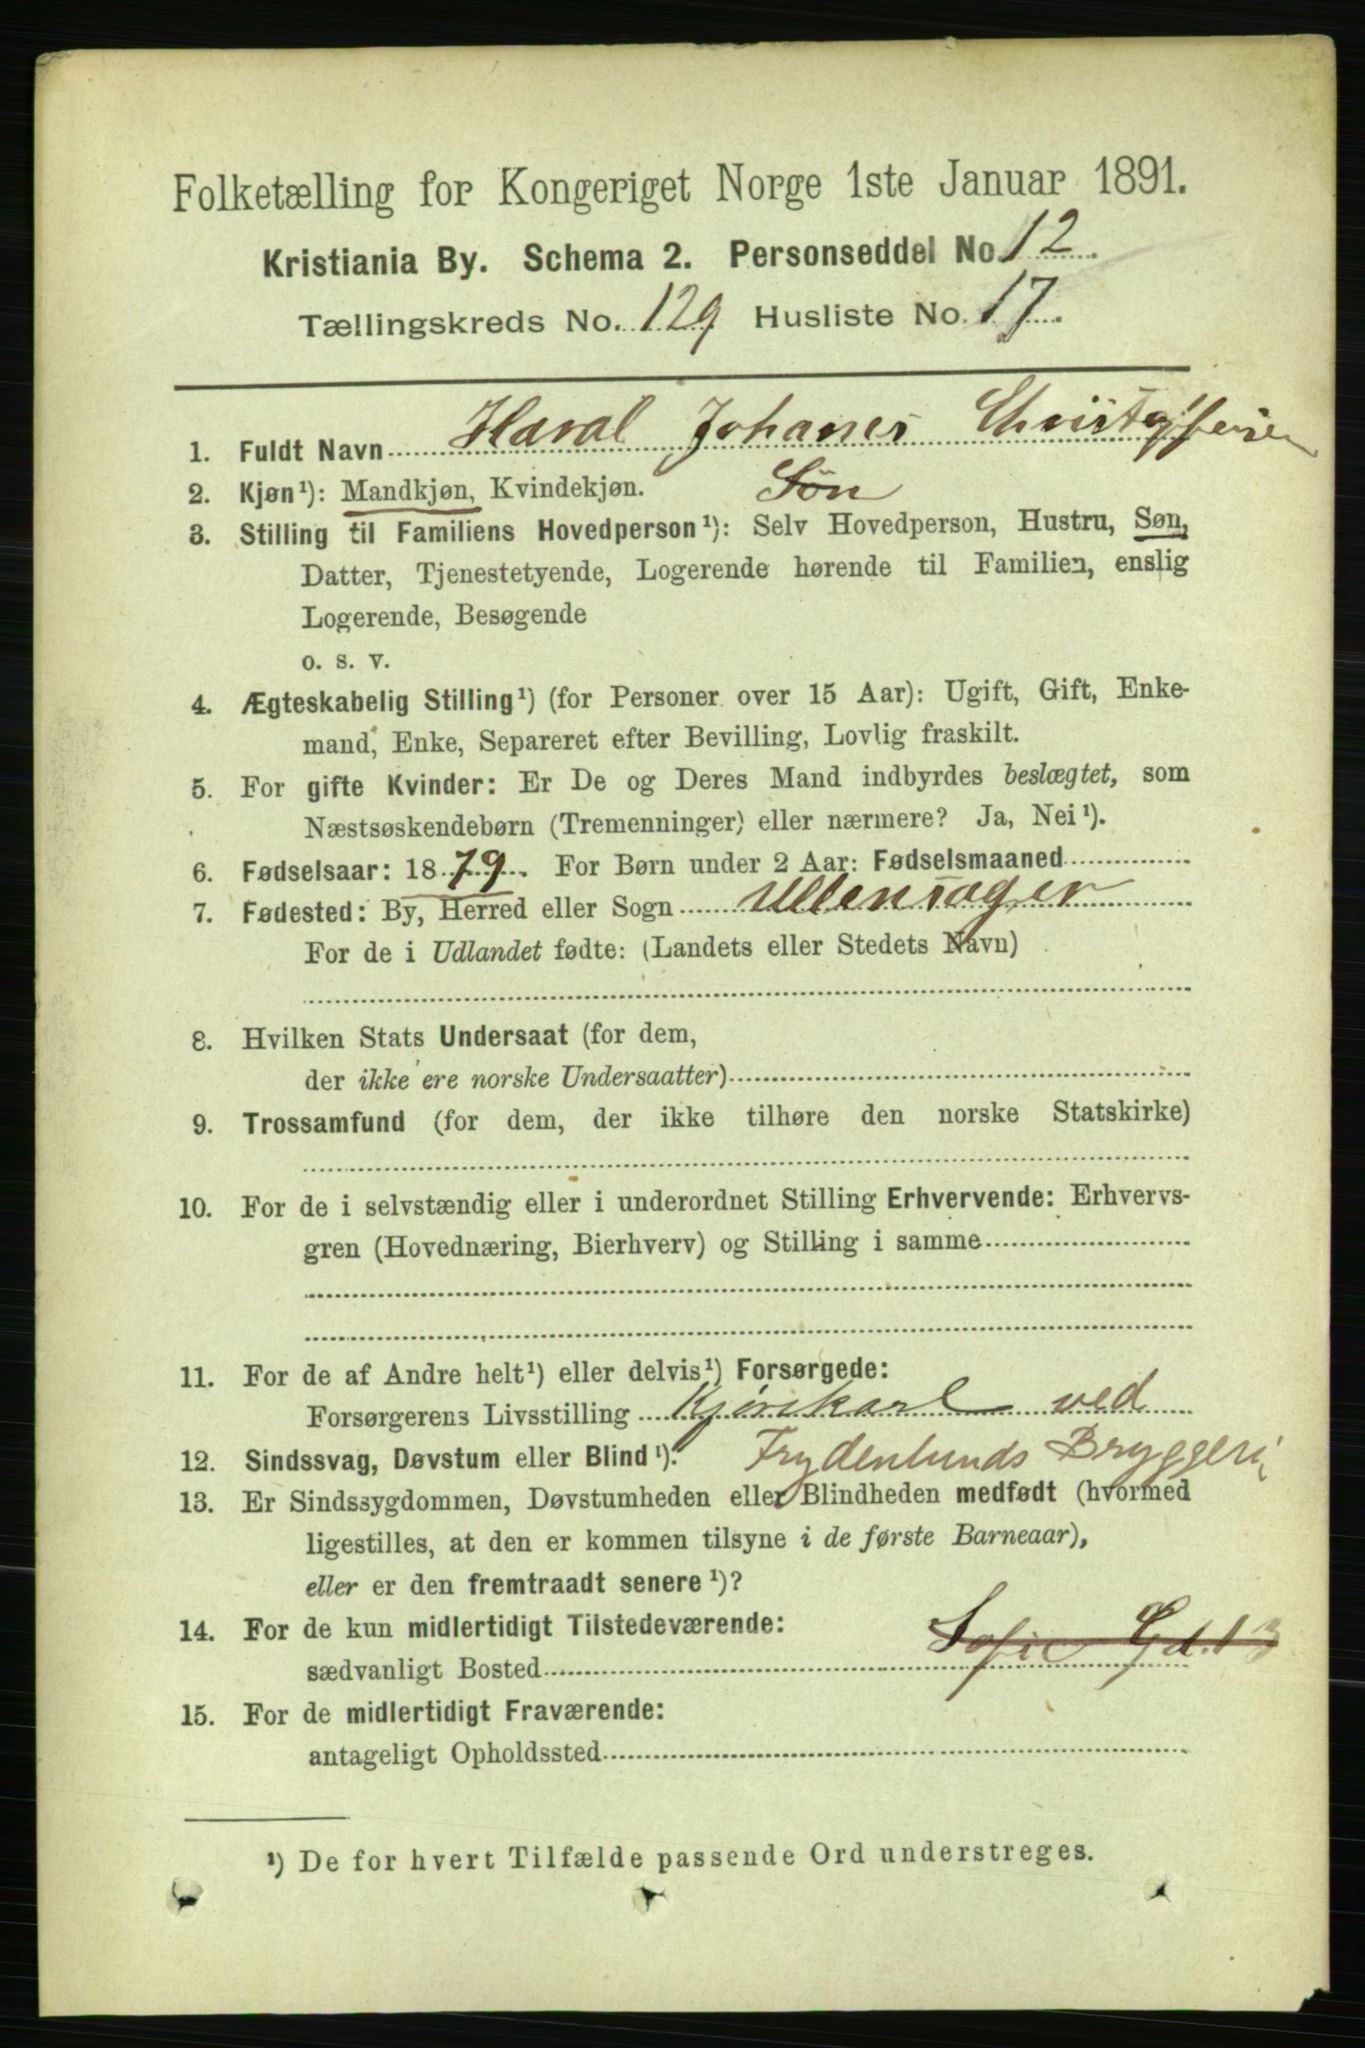 Folketælling for Kongeriget Norge 1ste Januar 1891.
Kristiania By. Schema 2. Personseddel No. 12.
Tællingskreds No. 129 Husliste No. 17.
1. Fuldt Navn Haral Johanes Christoffersen
2. Kjøn¹): Mandkjøn, Kvindekjøn. Søn
3. Stilling til Familiens Hovedperson¹): Selv Hovedperson, Hustru, Søn,
Datter, Tjenestetyende, Logerende hørende til Familien, enslig
Logerende, Besøgende
o. s. v.
4. Ægteskabelig Stilling¹) (for Personer over 15 Aar): Ugift, Gift, Enke-
mand, Enke, Separeret efter Bevilling, Lovlig fraskilt.
5. For gifte Kvinder: Er De og Deres Mand indbyrdes beslægtet, som
Næstsøskendebørn (Tremenninger) eller nærmere? Ja, Nei¹).
6. Fødselsaar: 1879. For Børn under 2 Aar: Fødselsmaaned
7. Fødested: By, Herred eller Sogn Ullensager
For de i Udlandet fødte: (Landets eller Stedets Navn)
8. Hvilken Stats Undersaat (for dem,
der ikke ere norske Undersaatter)
9. Trossamfund (for dem, der ikke tilhøre den norske Statskirke)
10. For de i selvstændig eller i underordnet Stilling Erhvervende: Erhvervs-
gren (Hovednæring, Bierhverv) og Stilling i samme
11. For de af Andre helt¹) eller delvis¹) Forsørgede:
Forsørgerens Livsstilling Kjørekarl ved
12. Sindssvag, Døvstum eller Blind¹). Frydenlunds Bryggeri
13. Er Sindssygdommen, Døvstumheden eller Blindheden medfødt (hvormed
ligestilles, at den er kommen tilsyne i de første Barneaar),
eller er den fremtraadt senere¹)?
14. For de kun midlertidigt Tilstedeværende: Sofie Gd. 13
sædvanligt Bosted
15. For de midlertidigt Fraværende:
antageligt Opholdssted
¹) De for hvert Tilfælde passende Ord understreges.